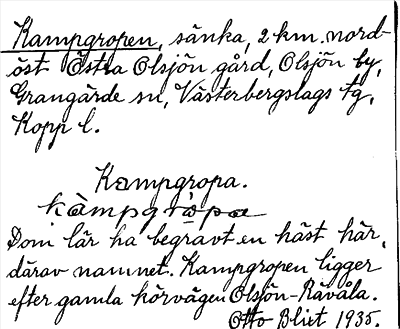 Kampgropen, sänka, 2 km. nord-
öst Östra Olsjön gård, Olsjön by,
Grangärde sn, Västerbergslags tg,
Kopp l.
Kampgropa.
kàmpgròpa
Dom lär ha begravt en häst här,
därav namnet. Kampgropen ligger
efter gamla körvägen Olsjön-Rävåla.
Otto Blixt 1935.